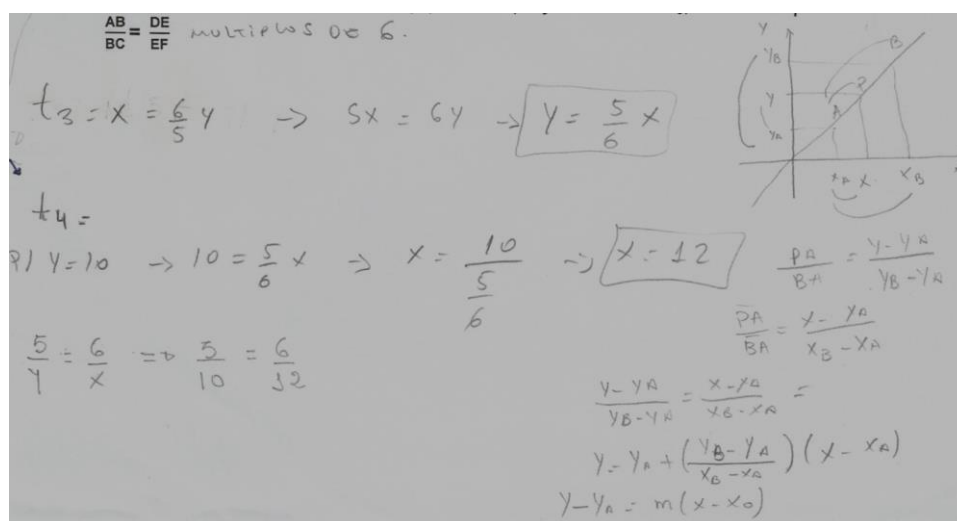 AB/BC = DE/EF MULTIPLOS DE 6.
t3 = x = 6/5 y -> 5x = 6y -> y = 5/6 x
t4 =
P/ Y=10 -> 10 = 5/6 x -> x = 10/(5/6) -> x = 12
5/y = 6/x => 5/10 = 6/12
Y
YB
Y
YA
B
P
A
xA x xB
PA/BA = (Y - YA)/(YB - YA)
PA/BA = (x - YA)/(xB - xA)
(Y - YA)/(YB - YA) = (x - YA)/(xB - xA) =
Y = YA + ((YB - YA)/(xB - xA)) (x - xA)
Y - YA = m(x - x0)